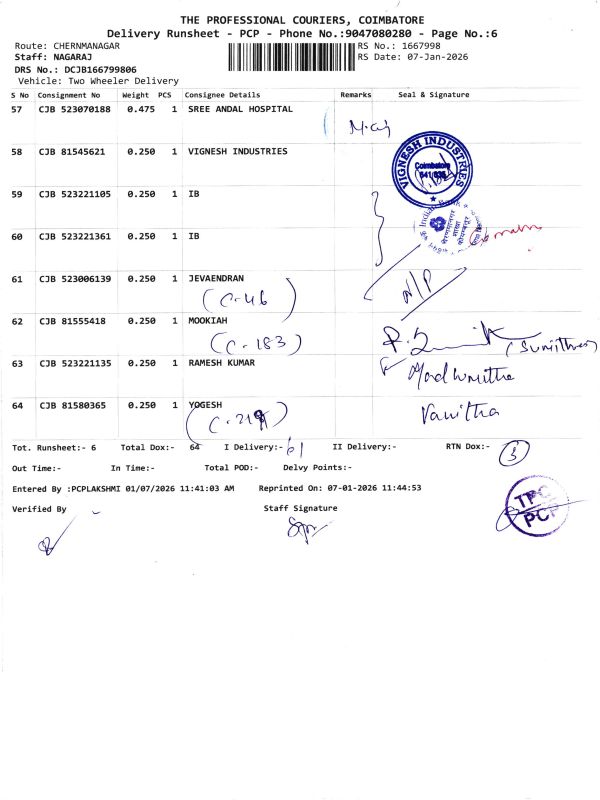 THE PROFESSIONAL COURIERS, COIMBATORE
Delivery Runsheet - PCP - Phone No.:9047080280 - Page No.:6
Route: CHERNMANAGAR RS No.: 1667998
Staff: NAGARAJ RS Date: 07-Jan-2026
DRS No.: DCJB166799806
Vehicle: Two Wheeler Delivery
S No Consignment No Weight PCS Consignee Details Remarks Seal & Signature
57 CJB 523070188 0.475 1 SREE ANDAL HOSPITAL
58 CJB 81545621 0.250 1 VIGNESH INDUSTRIES
VIGNESH INDUSTRIES
Coimbatore
641 035
59 CJB 523221105 0.250 1 IB
Indian Bank
60 CJB 523221361 0.250 1 IB
61 CJB 523006139 0.250 1 JEVAENDRAN
(C-46) N/P
62 CJB 81555418 0.250 1 MOOKIAH
(C-183)
63 CJB 523221135 0.250 1 RAMESH KUMAR
64 CJB 81580365 0.250 1 YOGESH Vanitha
Tot. Runsheet:- 6 Total Dox:- 64 I Delivery:- 61 II Delivery:- RTN Dox:- 3
Out Time:- In Time:- Total POD:- Delvy Points:-
Entered By :PCPLAKSHMI 01/07/2026 11:41:03 AM Reprinted On: 07-01-2026 11:44:53
Verified By Staff Signature
TPC
PCP